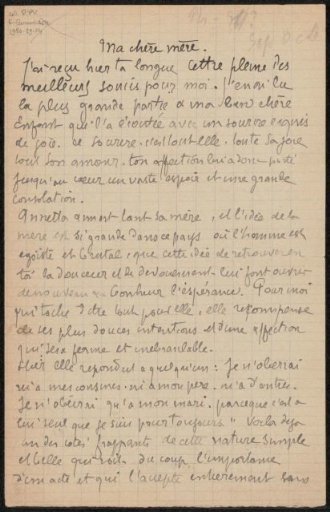 Ma chère mère.
J'ai reçu hier ta longue lettre pleine des
meilleurs soucis pour moi. J'en ai lu
la plus grande partie à ma bien chère
Enfant qui l'a écoutée avec un sourire exquis
de joie. Ce sourire, c'est tout elle, toute sa joie
tous son amour. ton affection lui a donc porté
jusqu'au cœur un vaste espoir et une grande
consolation.
Annetta aimait tant sa mère, et l'idée de la
mère est si grande dans ce pays où l'homme est
egoïste et brutal, que cette idée de retrouver en
toi la douceur et le devouement lui font ouvrir
de nouveau au bonheur l'espérance. Pour moi
qui tache d'être tout pour elle, elle récompense
de ses plus douces intentions et d'une affection
qui sera ferme et inebranlable.
Hier elle répondit a quelqu'un : Je n'obeirai
ni a mes cousines, ni a mon père, ni a d'autres.
Je n'obéirai qu'a mon mari, parceque c'est a
lui seul que je suis pour toujours" Voila déja
un des cotés frappants de cette nature simple
et belle qui voit du coup l'importance
d'un acte et qui l'accepte entièrement sans